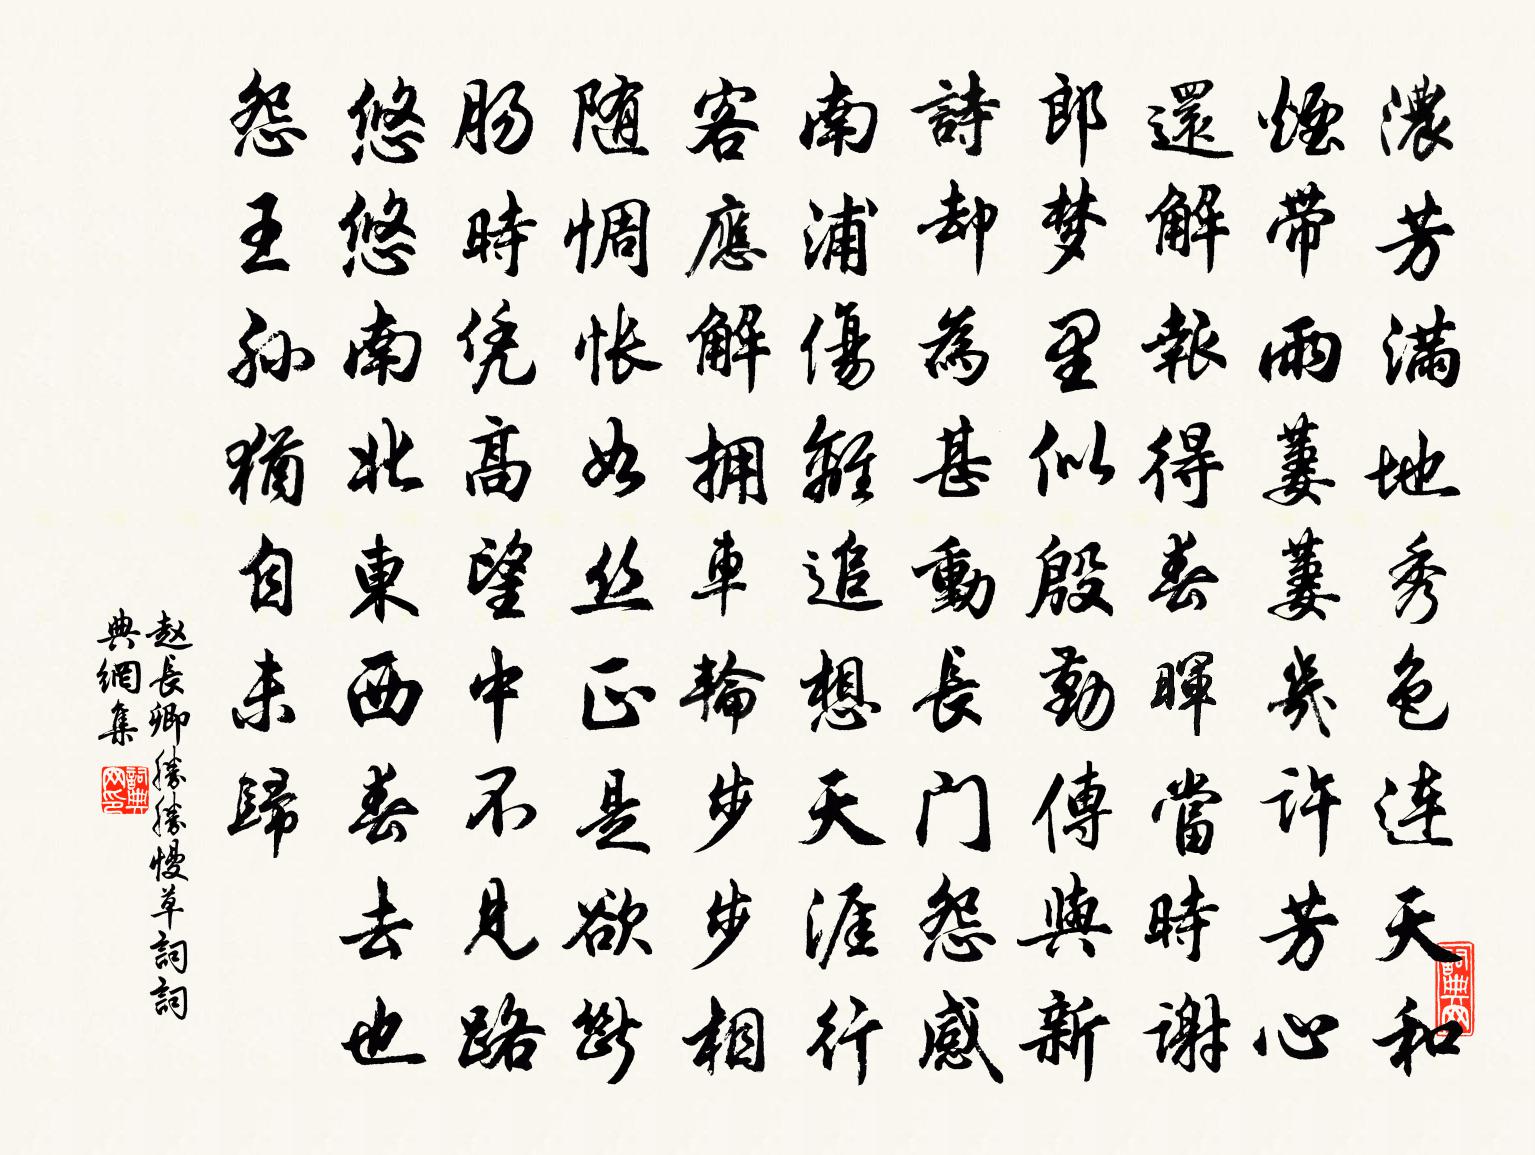 濃芳滿地秀色連天和
煙帶雨萋萋幾許芳心
還解報得春暉當時謝
郎梦里似殷勤傳與新
詩却為甚動長门怨感
南浦傷離追想天涯行
客應解拥車輪步步相
随惆怅如丝正是欲斷
肠時凭高望中不見路
悠悠南北東西春去也
怨王孙猶自未歸
赵長卿勝勝慢草詞詞
典網集
詞典网印
詞典网